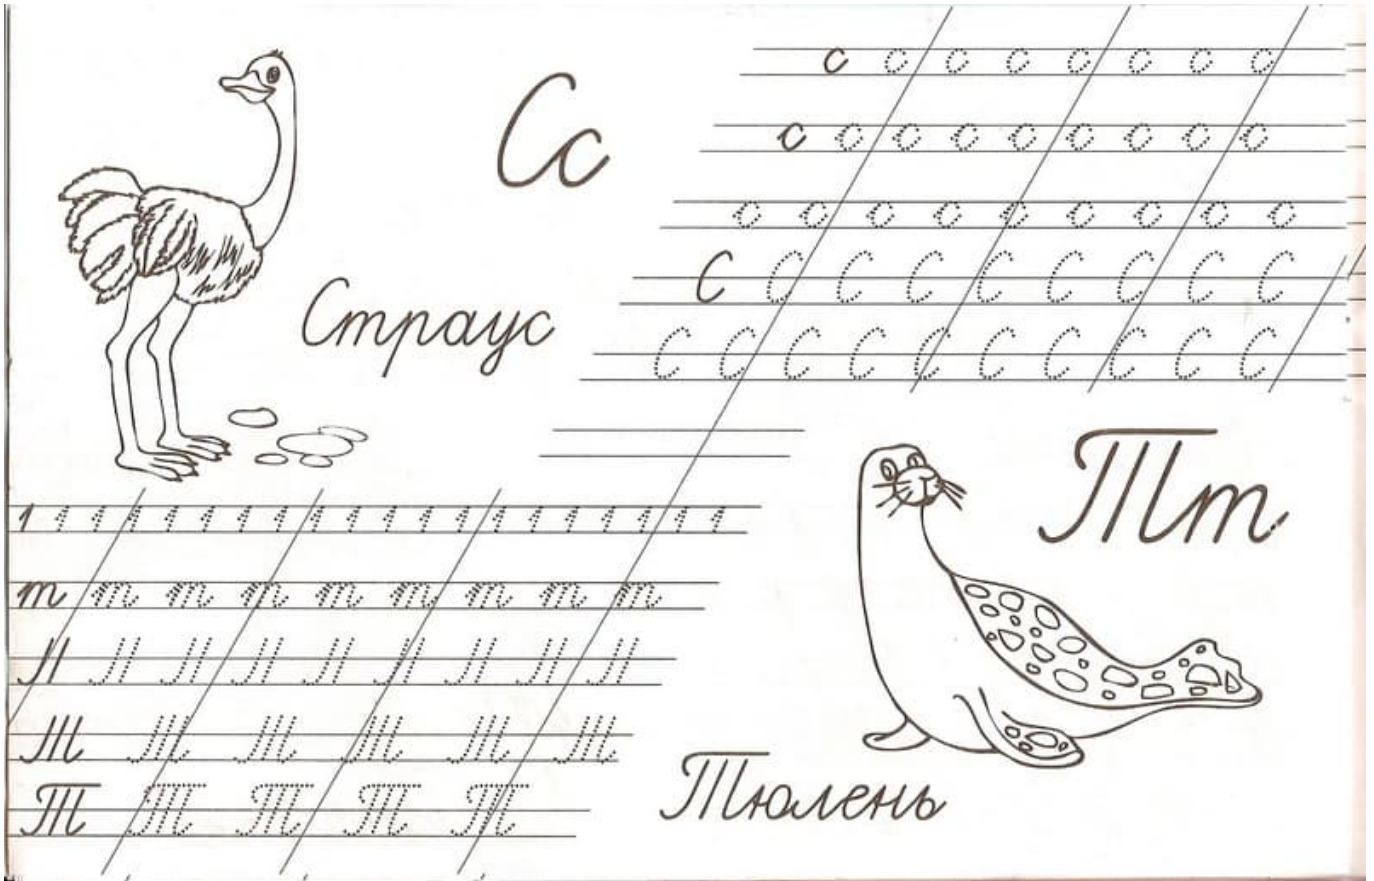 Сс
с с с с с с с с
с с с с с с с с с
с с с с с с с с с
С С С С С С С С С
С С С С С С С С С С
Страус
Тт
т т т т т т т т т
Т Т Т Т Т
Тюлень